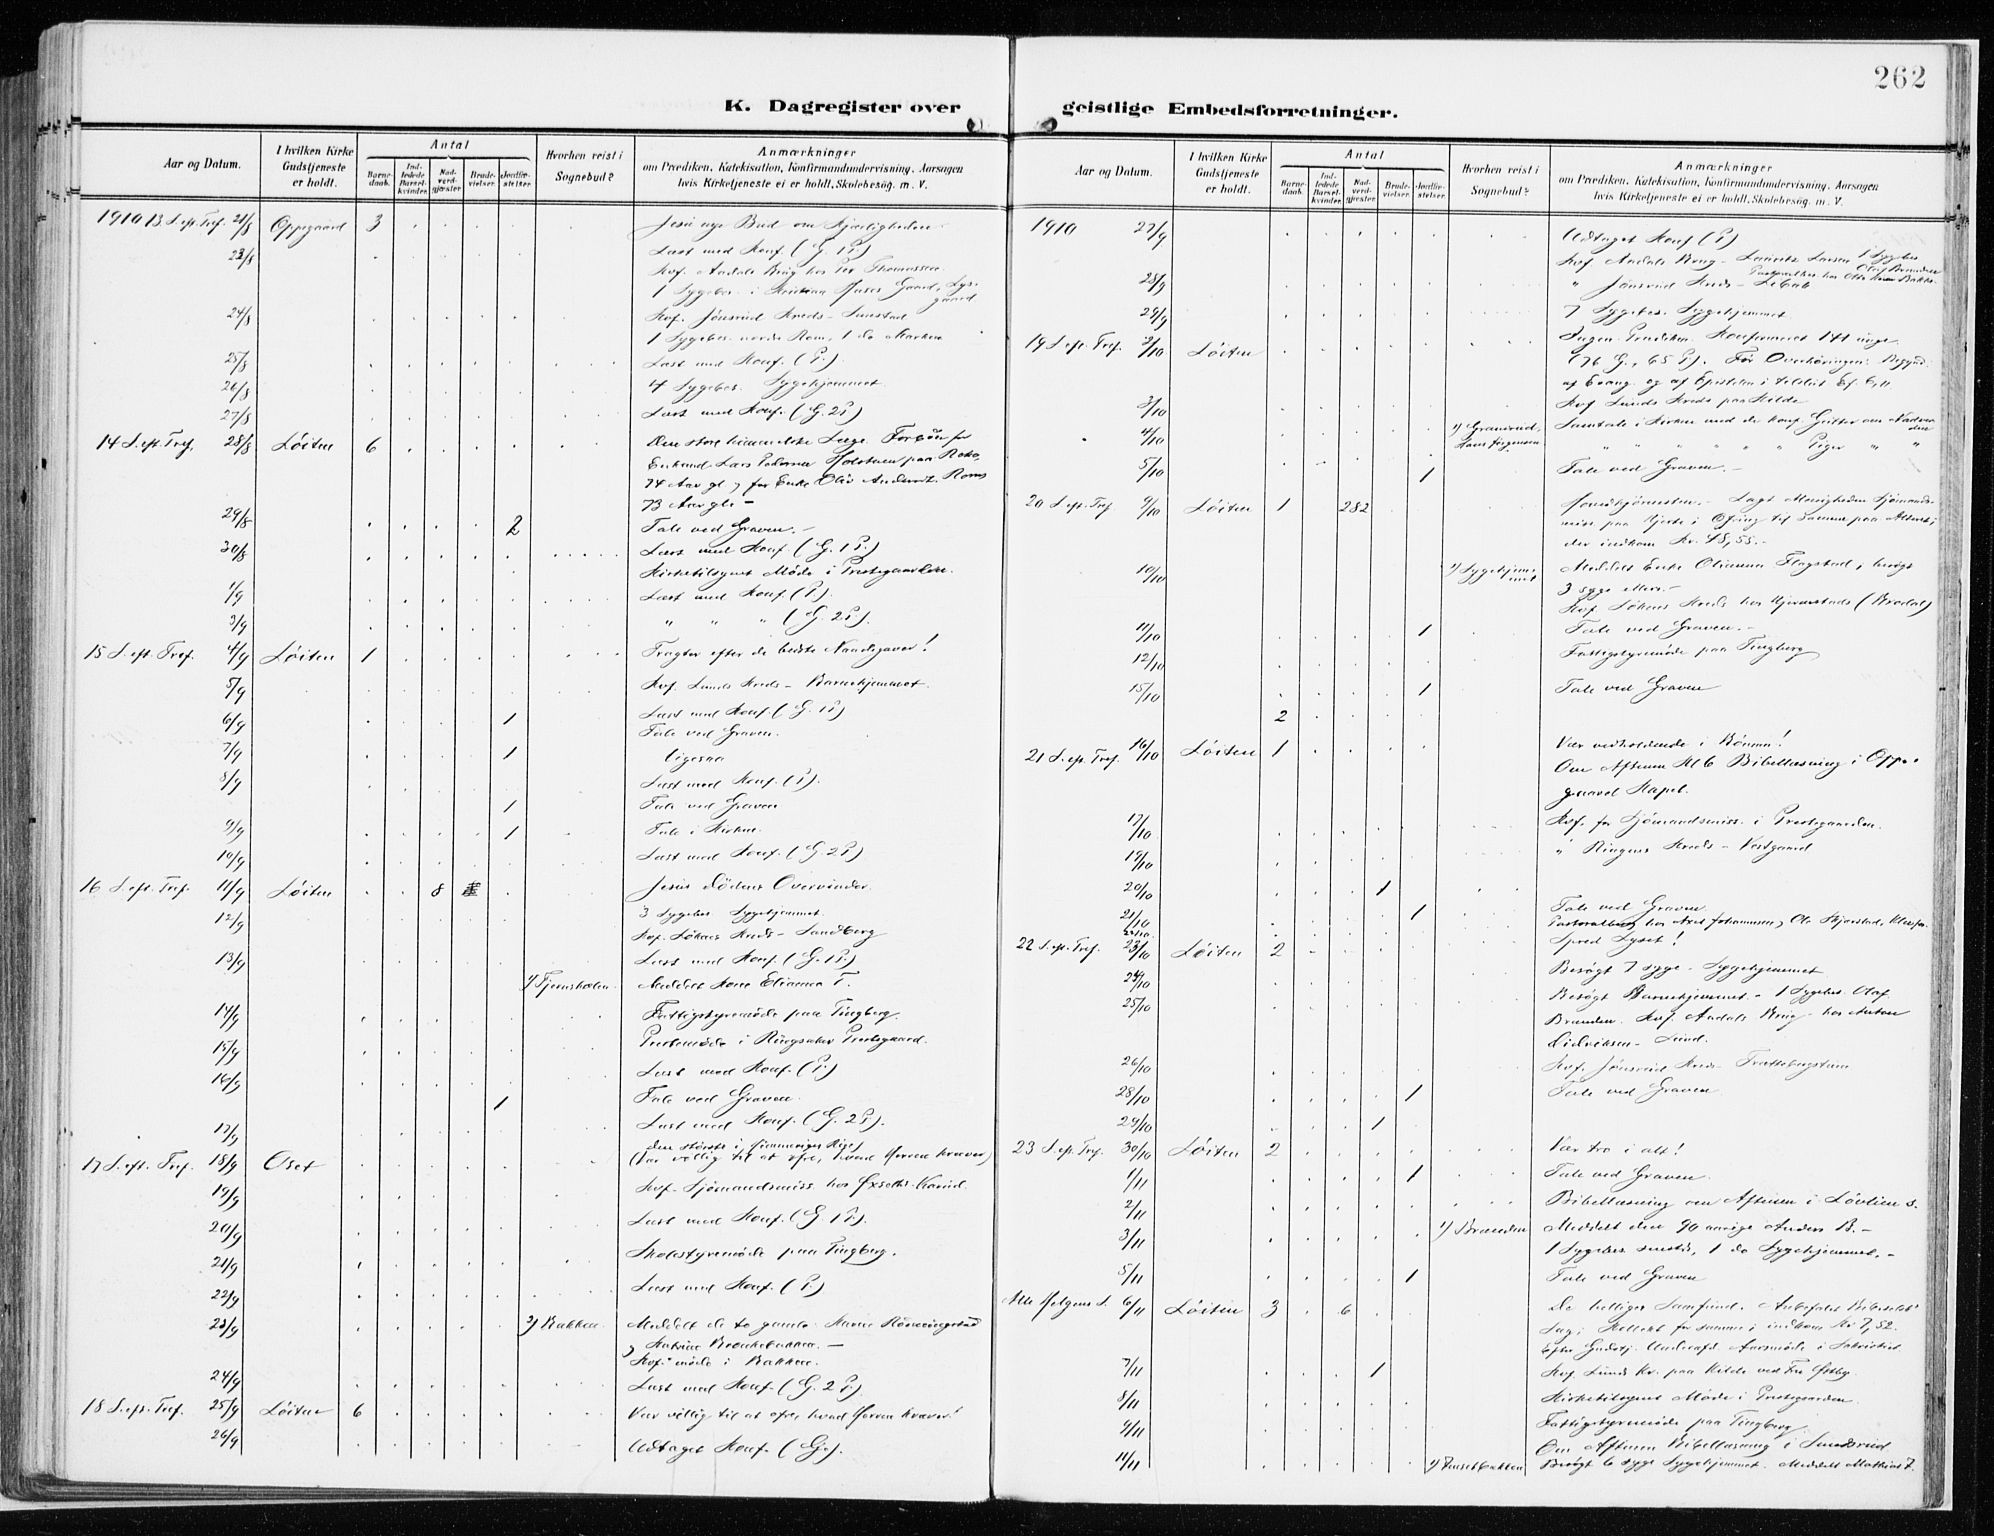 262
K. Dagregister over geistlige Embedsforretninger.
Aar og Datum.
I hvilken Kirke Gudstjeneste er holdt.
Antal
Barnedaab.
Indledede Barselkvinder.
Nadverdgjæster.
Brudevielser.
Jordfæstelser.
Hvorhen reist i Sognebud?
Anmærkninger
om Prædiken, Katekisation, Konfirmandundervisning, Aarsagen
hvis Kirketjeneste ei er holdt, Skolebesøg. m. V.
1910 13 S. eft. Tref. 21/8 Oppegaard 3 Jesu nye Bud om Kjærligheden.
23/8 Læst med Konf. (G. 1 P.)
Kof. Aadals Brug hos Per Thomassen
1 Sygebes. i Kristian
24/8 Kof. Jønsrud Kreds -
1 Sygebes. nordre Rom, 1 do Marken
25/8 Læst med Konf. (P.)
26/8 4 Sygebes. Sygehjemmet.
27/8 Læst med Konf. (G. 2 P.)
14 S. eft. Tref. 28/8 Løiten 6 Den store himmelske Læge. Forbøn for
Enkemand Lars Pedersen Holstuen paa
74 Aar gl. og for Enke
73 Aar gl. -
29/8 2 Tale ved Graven. -
30/8 Læst med Konf. (G. 1 P.)
Kirketilsynet Møde i Prestegaarden.
1/9 Læst med Konf. (P.)
3/9 " " " (G. 2 P.)
15 S. eft. Tref. 4/9 Løiten 1 Tragter efter de bedste Naadegaver!
5/9 Kof. Lunds Kreds - Barnehjemmet.
6/9 1 Læst med Konf. (G. 1 P.)
Tale ved Graven.
7/9 1 Ligesaa
8/9 Læst med Konf. (P.)
1 Tale ved Graven
9/9 1 Tale i Kirken.
10/9 Læst med Konf. (G. 2 P.)
16 S. eft. Tref. 11/9 Løiten 8 Jesus Dødens Overvinder.
12/9 3 Sygebes. Sygehjemmet.
Kof. Løkens Kreds - Sandberg
13/9 Læst med Konf. (G. 1 P.)
1) Tjernsholen. Meddelt Kone Elianna T.
14/9 Fattigstyremøde paa Tingberg.
15/9 Prestemøde i Ringsaker Prestegaard.
16/9 Læst med Konf. (P.)
1 Tale ved Graven.
17/9 Læst med Konf. (G. 2 P.)
17 S. eft. Tref. 18/9 Oset Den største i Himmeriges Rige
(Vær villig til at ofre, hvad Herren kræver)
19/9 Kof. Sjømandsmiss. hos
20/9 Læst med Konf. (G. 1 P.)
21/9 Skolestyremøde paa Tingberg.
22/9 Læst med Konf. (P.)
23/9 2) Bakken. Meddelt de to gamle Karine
Kof. møde i Bakken.
24/9 Læst med Konf. (G. 2 P.)
18 S. eft. Tref. 25/9 Løiten 6 Vær villig til at ofre, hvad Herren kræver!
26/9 Udtaget Konf. (G.)
Aar og Datum.
I hvilken Kirke Gudstjeneste er holdt.
Antal
Barnedaab.
Indledede Barselkvinder.
Nadverdgjæster.
Brudevielser.
Jordfæstelser.
Hvorhen reist i Sognebud?
Anmærkninger
om Prædiken, Katekisation, Konfirmandundervisning, Aarsagen
hvis Kirketjeneste ei er holdt, Skolebesøg. m. V.
1910 27/9 Udtaget Konf (P.)
Kof. Aadals Brug - Lauritz Larsen 1 Sygebes
28/9 " Jønsrud Kreds -
29/9 7 Sygebes. Sygehjemmet
19 S. eft. Tref. 2/10 Løiten Ingen Prædiken. Konfirmeret 141 unge
(76 G., 65 P.). Før Overhøringen:
af Evang. og af Epistelen
3/10 Kof. Lunds Kreds paa Kilde
4/10 1) Gransrud, Hans Jørgensen Samtale i Kirken med de konf. Gutter om Nadverden
" " " " " Piger " "
5/10 1 Tale ved Graven. -
20 S. eft. Tref. 9/10 Løiten 1 282 Lagt Menigheden Sjømandsmiss. paa Hjerte i Ofring til samme paa Alteret;
der indkom Kr. 48,55. -
10/10 1) Sygehjemmet Meddelt Enke Flagstad, besøgt
3 syge ellers. -
Kof. Løkens Kreds hos
11/10 1 Tale ved Graven. -
12/10 Fattigstyremøde paa Tingberg
15/10 1 Tale ved Graven
2
21 S. eft. Tref. 16/10 Løiten 1 Vær vedholdende i Bønnen!
Om Aftenen Kl 6 Bibellæsning i Oppegaard Kapel.
17/10 Kof. for Sjømandsmiss. i Prestegaarden.
19/10 " Ringnes Kreds - Vestgaard
20/10 1
21/10 1 Tale ved Graven
22 S. eft. Tref. 23/10 Løiten 2 Spred Lyset!
24/10 Besøgt 7 syge - Sygehjemmet
25/10 Besøgt Barnehjemmet - 1 Sygebes. Olaf
Branden. Kof. Aadals Brug - hos Anton
Didriksen - Lund.
26/10 Kof. Jønsrud Kreds -
28/10 1 Tale ved Graven
29/10 1
23 S. eft. Tref. 30/10 Løiten 2 Vær tro i alt!
1/11 1 Tale ved Graven.
2/11 Bibellæsning om Aftenen i Løvlien S.
3/11 1) Brænden Meddelt den 90 aarige Anders B. -
1 Sygebes. , 1 do Sygehjemmet. -
5/11 1 Tale ved Graven
Alle Helgens S. 6/11 Løiten 3 6 De helliges Samfund. Anbefalet Bibelselsk.
Sag; Kollekt for samme; indkom Kr 7,52.
Efter Gudstj. Aarsmøde i Sakristiet
7/11 1 Kof. Lunds Kr. paa Kilde ved Fru Østby.
8/11 Kirketilsynet Møde i Prestegaarden
9/11 Fattigstyremøde paa Tingberg
Om Aftenen Bibellæsning i
11/11 Besøgt 6 syge Sygehjemmet. Meddelt Mathias F.